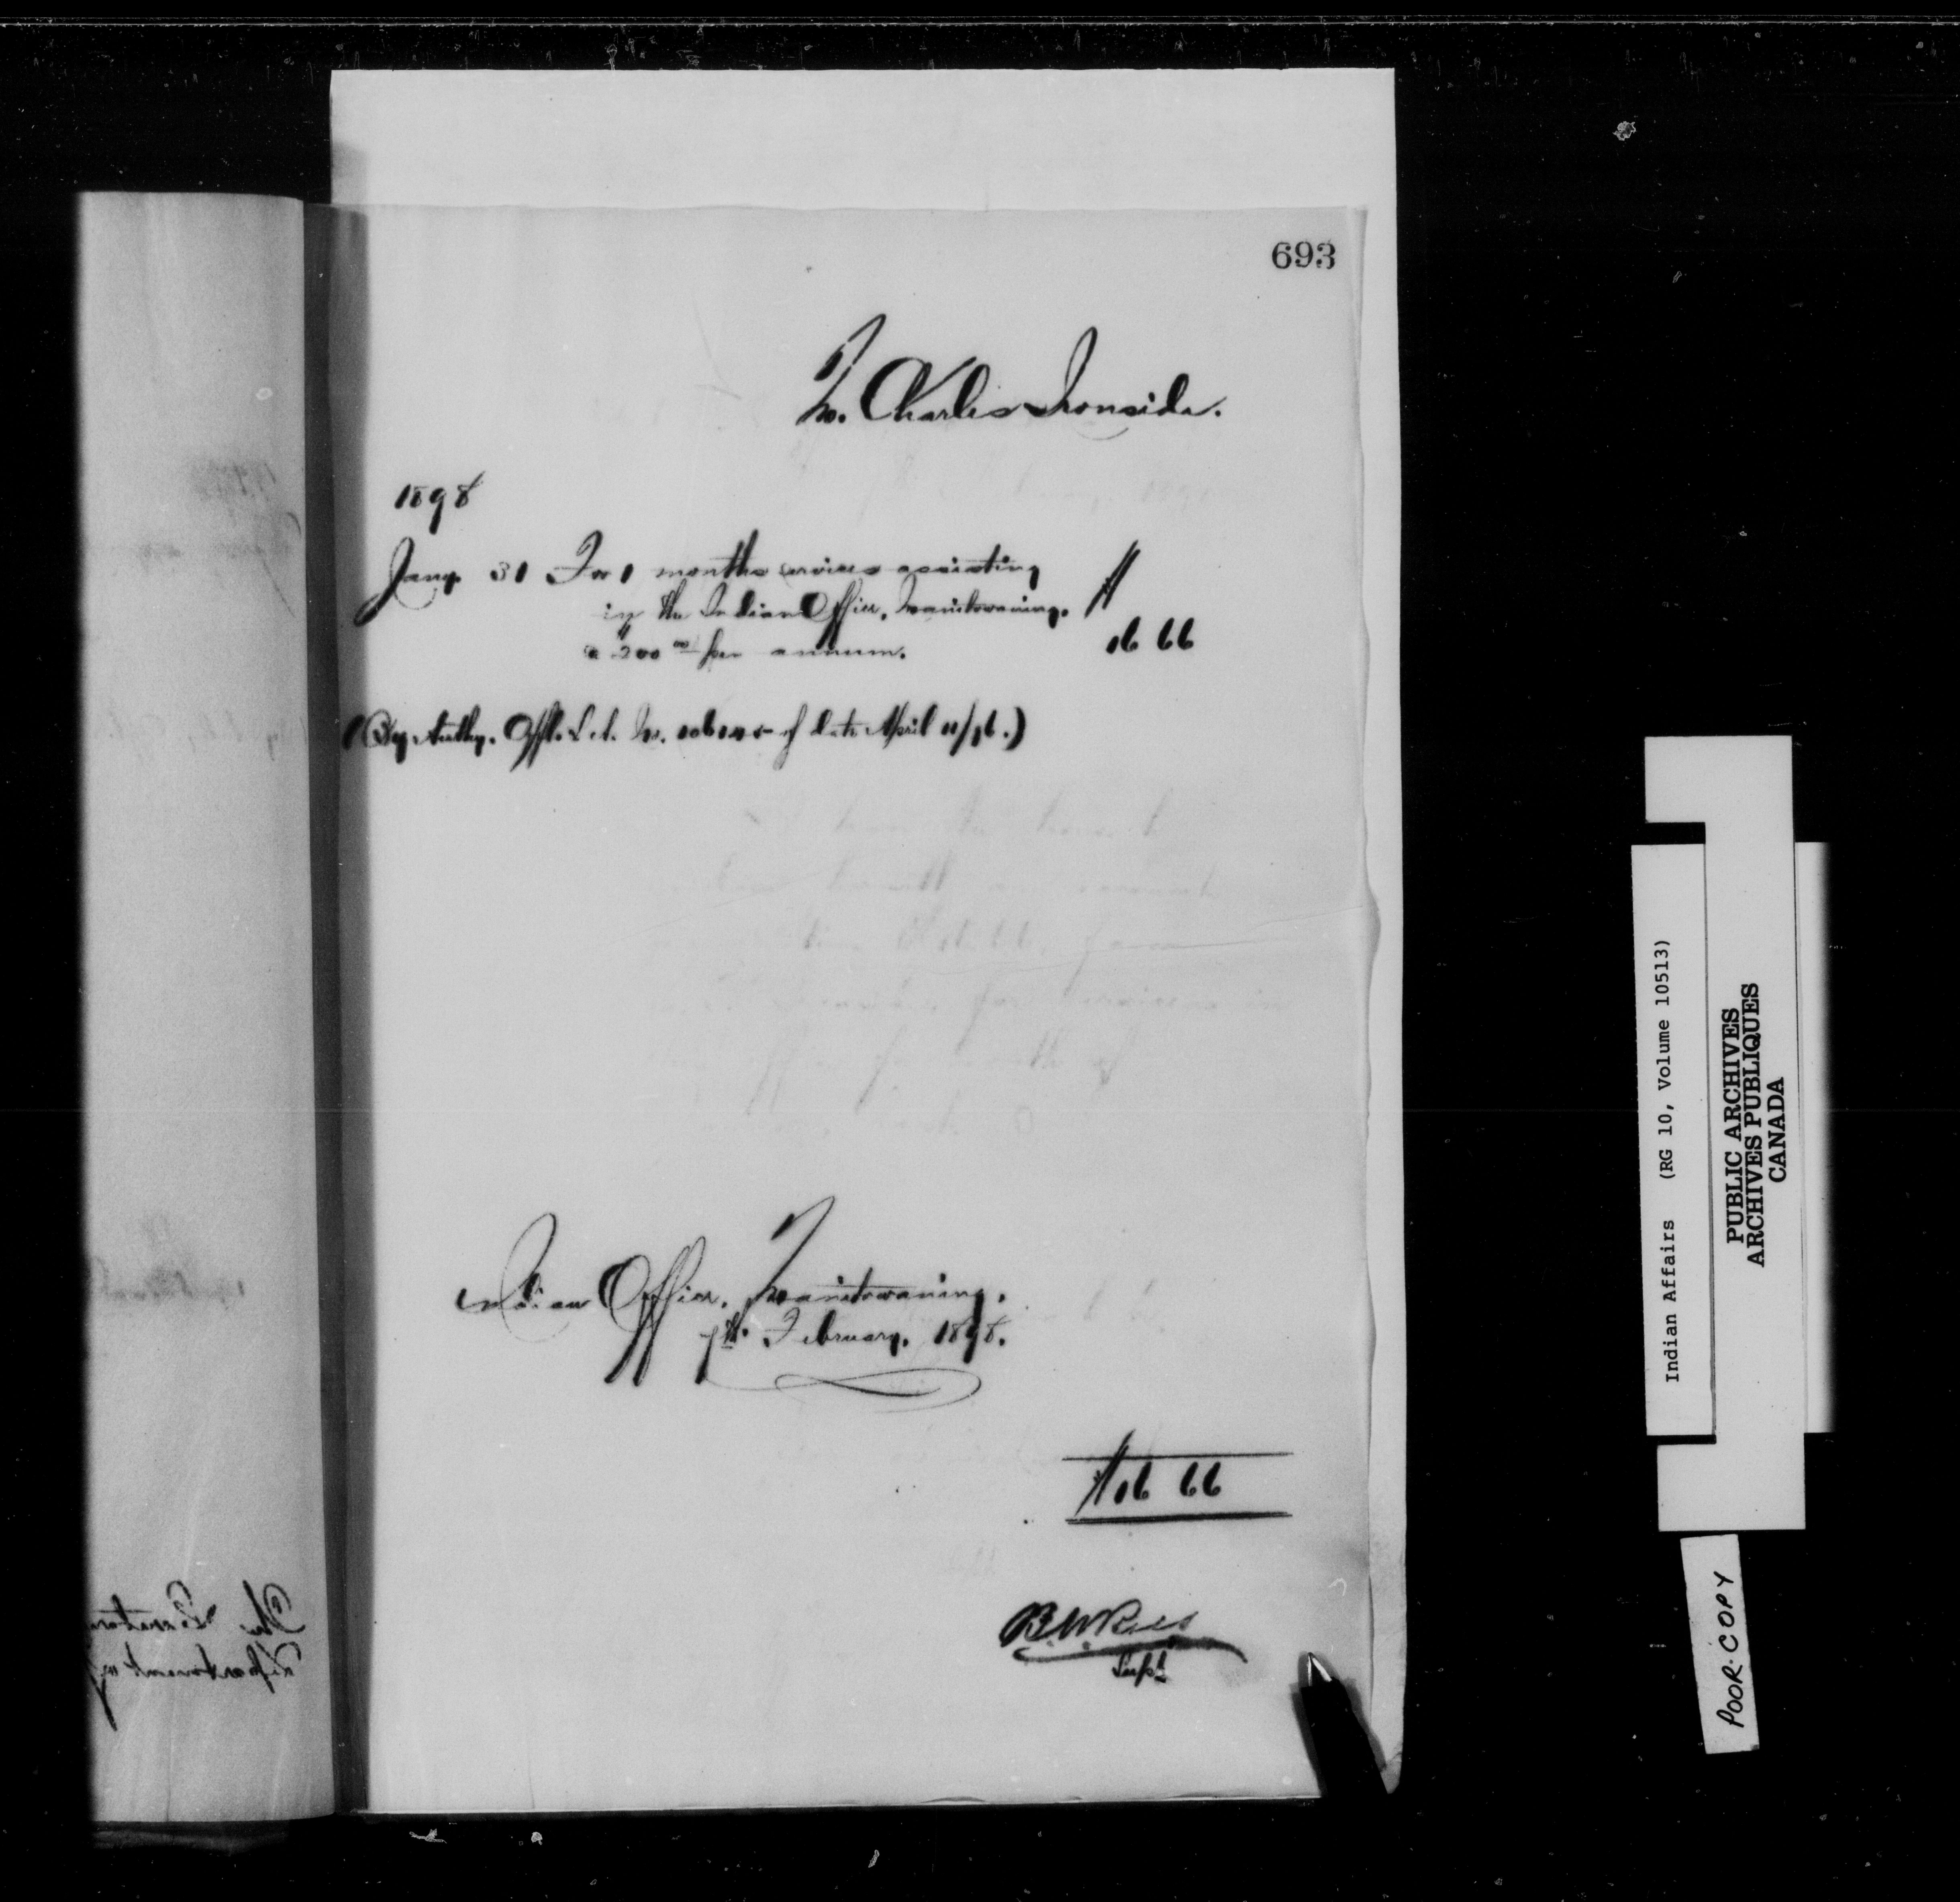 693
To. Charles Ironside.
1898
Jany. 31 For 1 months services assisting
in the Indian Office, Manitowaning. $
@ $200 00 per annum. 16 66
(By Authy. Offl. Let. No. of date April 11/96.)
Indian Office, Manitowaning.
7th. February, 1898.
$16 66
B.W. Ross
Supt
The Secretary
Department of
Indian Affairs (RG 10, Volume 10513)
PUBLIC ARCHIVES
ARCHIVES PUBLIQUES
CANADA
POOR COPY